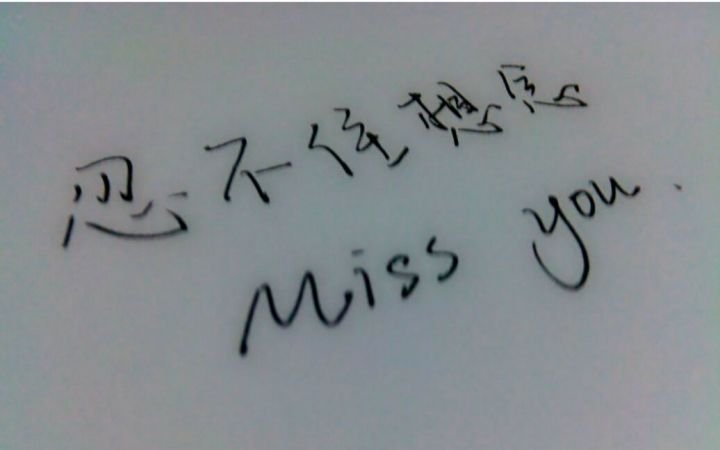 忍不住想
Miss you.